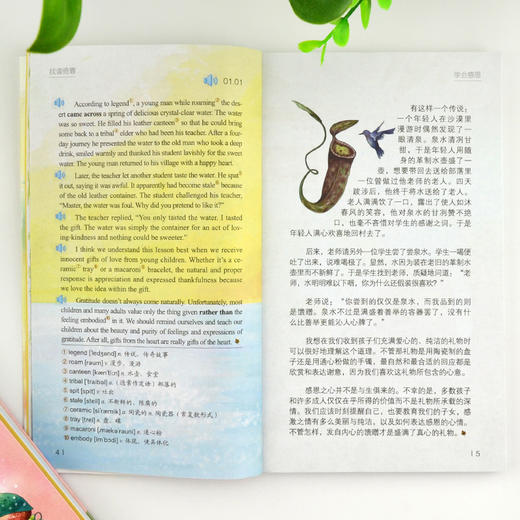 01.01
According to legend①, a young man while roaming② the des-
ert came across a spring of delicious crystal-clear water. The
water was so sweet. He filled his leather canteen③ so that he could
bring some back to a tribal④ elder who had been his teacher. After a four-
day journey he presented the water to the old man who took a deep
drink, smiled warmly and thanked his student lavishly for the sweet
water. The young man returned to his village with a happy heart.
Later, the teacher let another student taste the water. He spat⑤
it out, saying it was awful. It apparently had become stale⑥ because
of the old leather container. The student challenged his teacher,
"Master, the water was foul. Why did you pretend to like it?"
The teacher replied, "You only tasted the water. I tasted
the gift. The water was simply the container for an act of lov-
ing-kindness and nothing could be sweeter."
I think we understand this lesson best when we receive
innocent gifts of love from young children. Whether it's a ce-
ramic⑦ tray⑧ or a macaroni⑨ bracelet, the natural and proper
response is appreciation and expressed thankfulness because
we love the idea within the gift.
Gratitude doesn't always come naturally. Unfortunately, most
children and many adults value only the thing given rather than the
feeling embodied⑩ in it. We should remind ourselves and teach our
children about the beauty and purity of feelings and expressions of
gratitude. After all, gifts from the heart are really gifts of the heart.
① legend [ˈledʒənd] n. 传说，传奇故事
② roam [rəum] v. 漫步，漫游
③ canteen [kænˈtiːn] n. 水壶，食堂
④ tribal [ˈtraibəl] a. （通常作定语）部落的
⑤ spit [spit] v. 吐出
⑥ stale [steil] a. 不新鲜的，陈腐的
⑦ ceramic [siˈræmik] a. 陶瓷的 n. 陶瓷器（常复数形式）
⑧ tray [trei] n. 盘，碟
⑨ macaroni [ˌmækəˈrəuni] n. 通心粉
⑩ embody [imˈbɔdi] v. 体现，使具体化
4 1
学会感恩
有这样一个传说：
一个年轻人在沙漠里
漫游时偶然发现了一
眼清泉。泉水清冽甘
甜，于是年轻人用随
身的革制水壶盛了一
壶，想要带回去送给部落里
一位曾做过他老师的老人。四天
跋涉后，他终于将水送给了老人。
老人满满饮了一口，露出了使人如沐
春风的笑容，他对泉水的甘冽赞不绝
口，也毫不吝惜对学生的感谢之词。于是
年轻人满心欢喜地回村去了。
后来，老师请另外一位学生尝了尝泉水。学生一喝便
吐了出来，说难喝极了。显然，水因为装在老旧的革制水
壶里而不新鲜了。于是学生找到老师，质疑地问道：“老
师，水明明难以下咽，你为什么还假装很喜欢？”
老师说：“你尝到的仅仅是泉水，而我品到的则
是馈赠。泉水不过是满盛着善举的容器罢了，没有什
么比善举更能沁人心脾了。”
我想在我们收到孩子们充满爱心的、纯洁的礼物时
可以很好地理解这个道理。不管那礼物是用陶瓷制的盘
子还是用通心粉做的手镯，最自然和最合适的回应都是
欣赏和表达谢意，因为我们喜欢这礼物所包含的心意。
感恩之心并不是与生俱来的。不幸的是，多数孩子
和许多成人仅仅在乎所得的价值而不是礼物所承载的深
情。我们应该时刻提醒自己，也要教育我们的子女，感
激之情有多么美丽与纯洁，以及如何表达感恩的心情。
不管怎样，发自内心的馈赠才是盛满了真心的礼物。
1 5